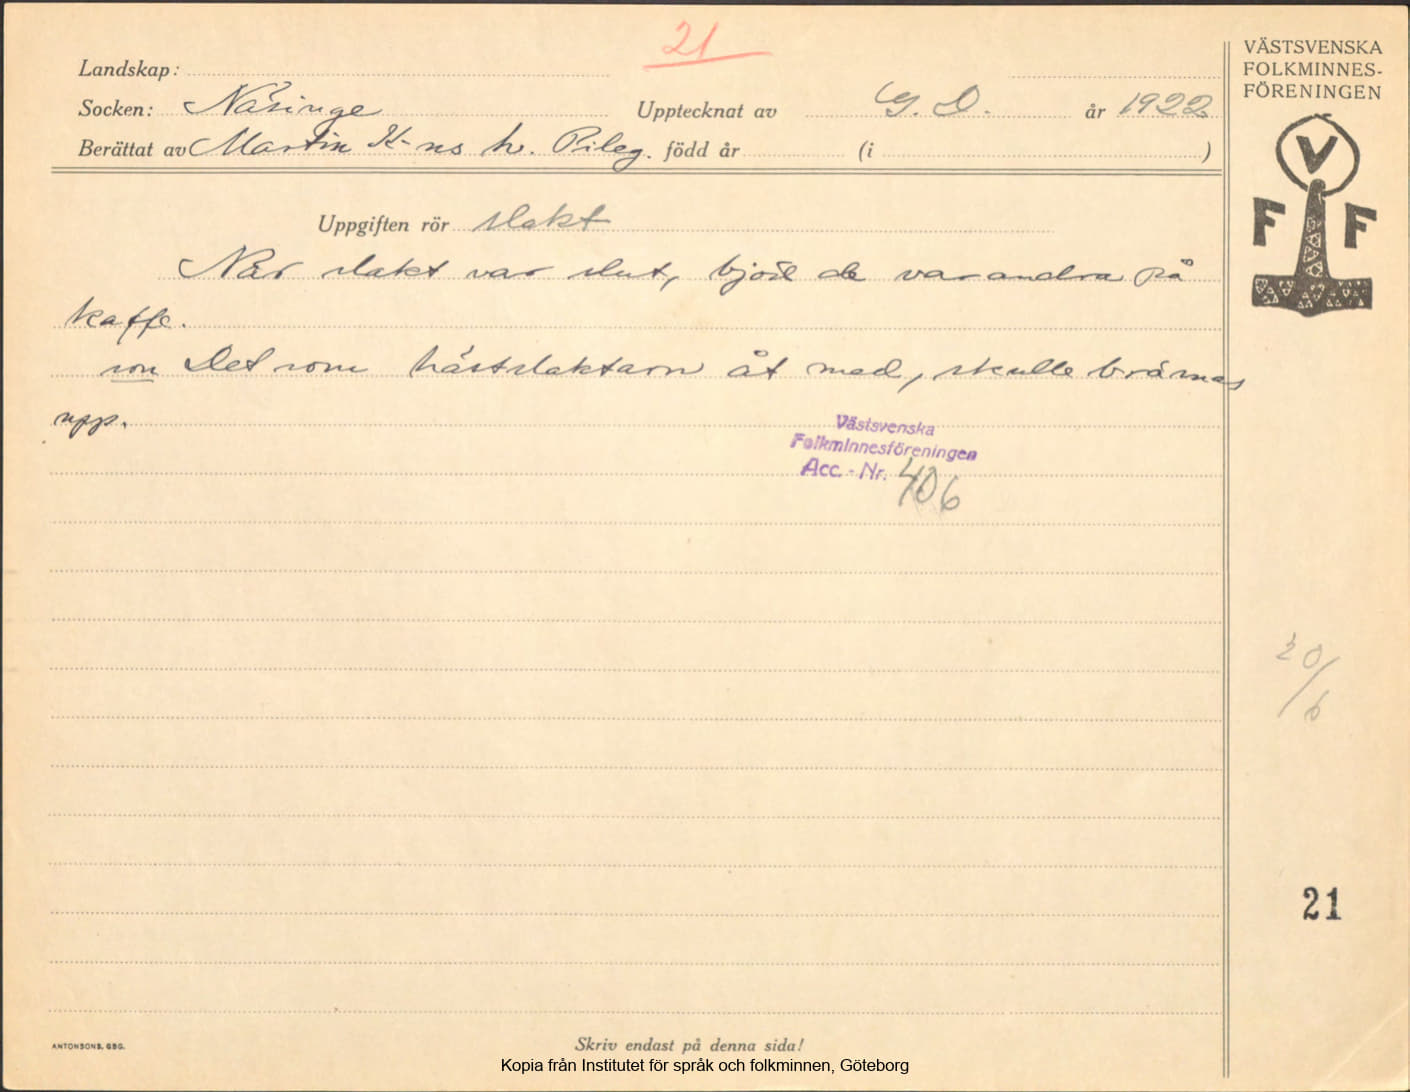 21
Landskap:
Socken: Näsinge Upptecknat av G. D. år 1922
Berättat av Martin K-ns h. Pileg. född år (i )
VÄSTSVENSKA
FOLKMINNES-
FÖRENINGEN
V
F F
Uppgiften rör slakt
När slakt var slut, bjöd de varandra på
kaffe.
son Det som hästslaktarn åt med, skulle brännas
upp.
Västsvenska
Folkminnesföreningen
Acc. - Nr. 406
20/6
21
ANTONSONS, GBG.
Skriv endast på denna sida!
Kopia från Institutet för språk och folkminnen, Göteborg